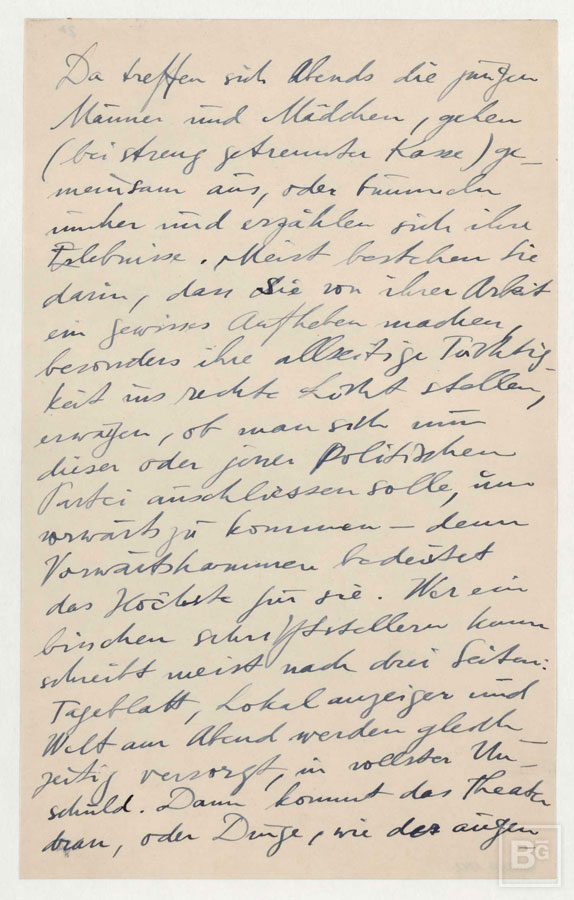 Da treffen sich Abends die jungen
Männer und Mädchen, gehen
(bei streng getrennter Kasse) ge-
meinsam aus, oder bummeln
umher und erzählen sich ihre
Erlebnisse. Meist bestehen sie
darin, dass Sie von ihrer Arbeit
ein gewisses Aufheben machen,
besonders ihre allseitige Tüchtig-
keit ins rechte Licht stellen,
erwägen, ob man sich nun
dieser oder jener Politischen
Partei anschliessen solle, um
vorwärts zu kommen – denn
Vorwärtskommen bedeutet
das Höchste für sie. Wer ein
bischen schriftstellern kann
schreibt meist nach drei Seiten:
Tageblatt, Lokalanzeiger und
Welt am Abend werden gleich-
zeitig versorgt, in vollster Un-
schuld. Dann kommt das Theater
dran, oder Dinge, wie der augen
BG